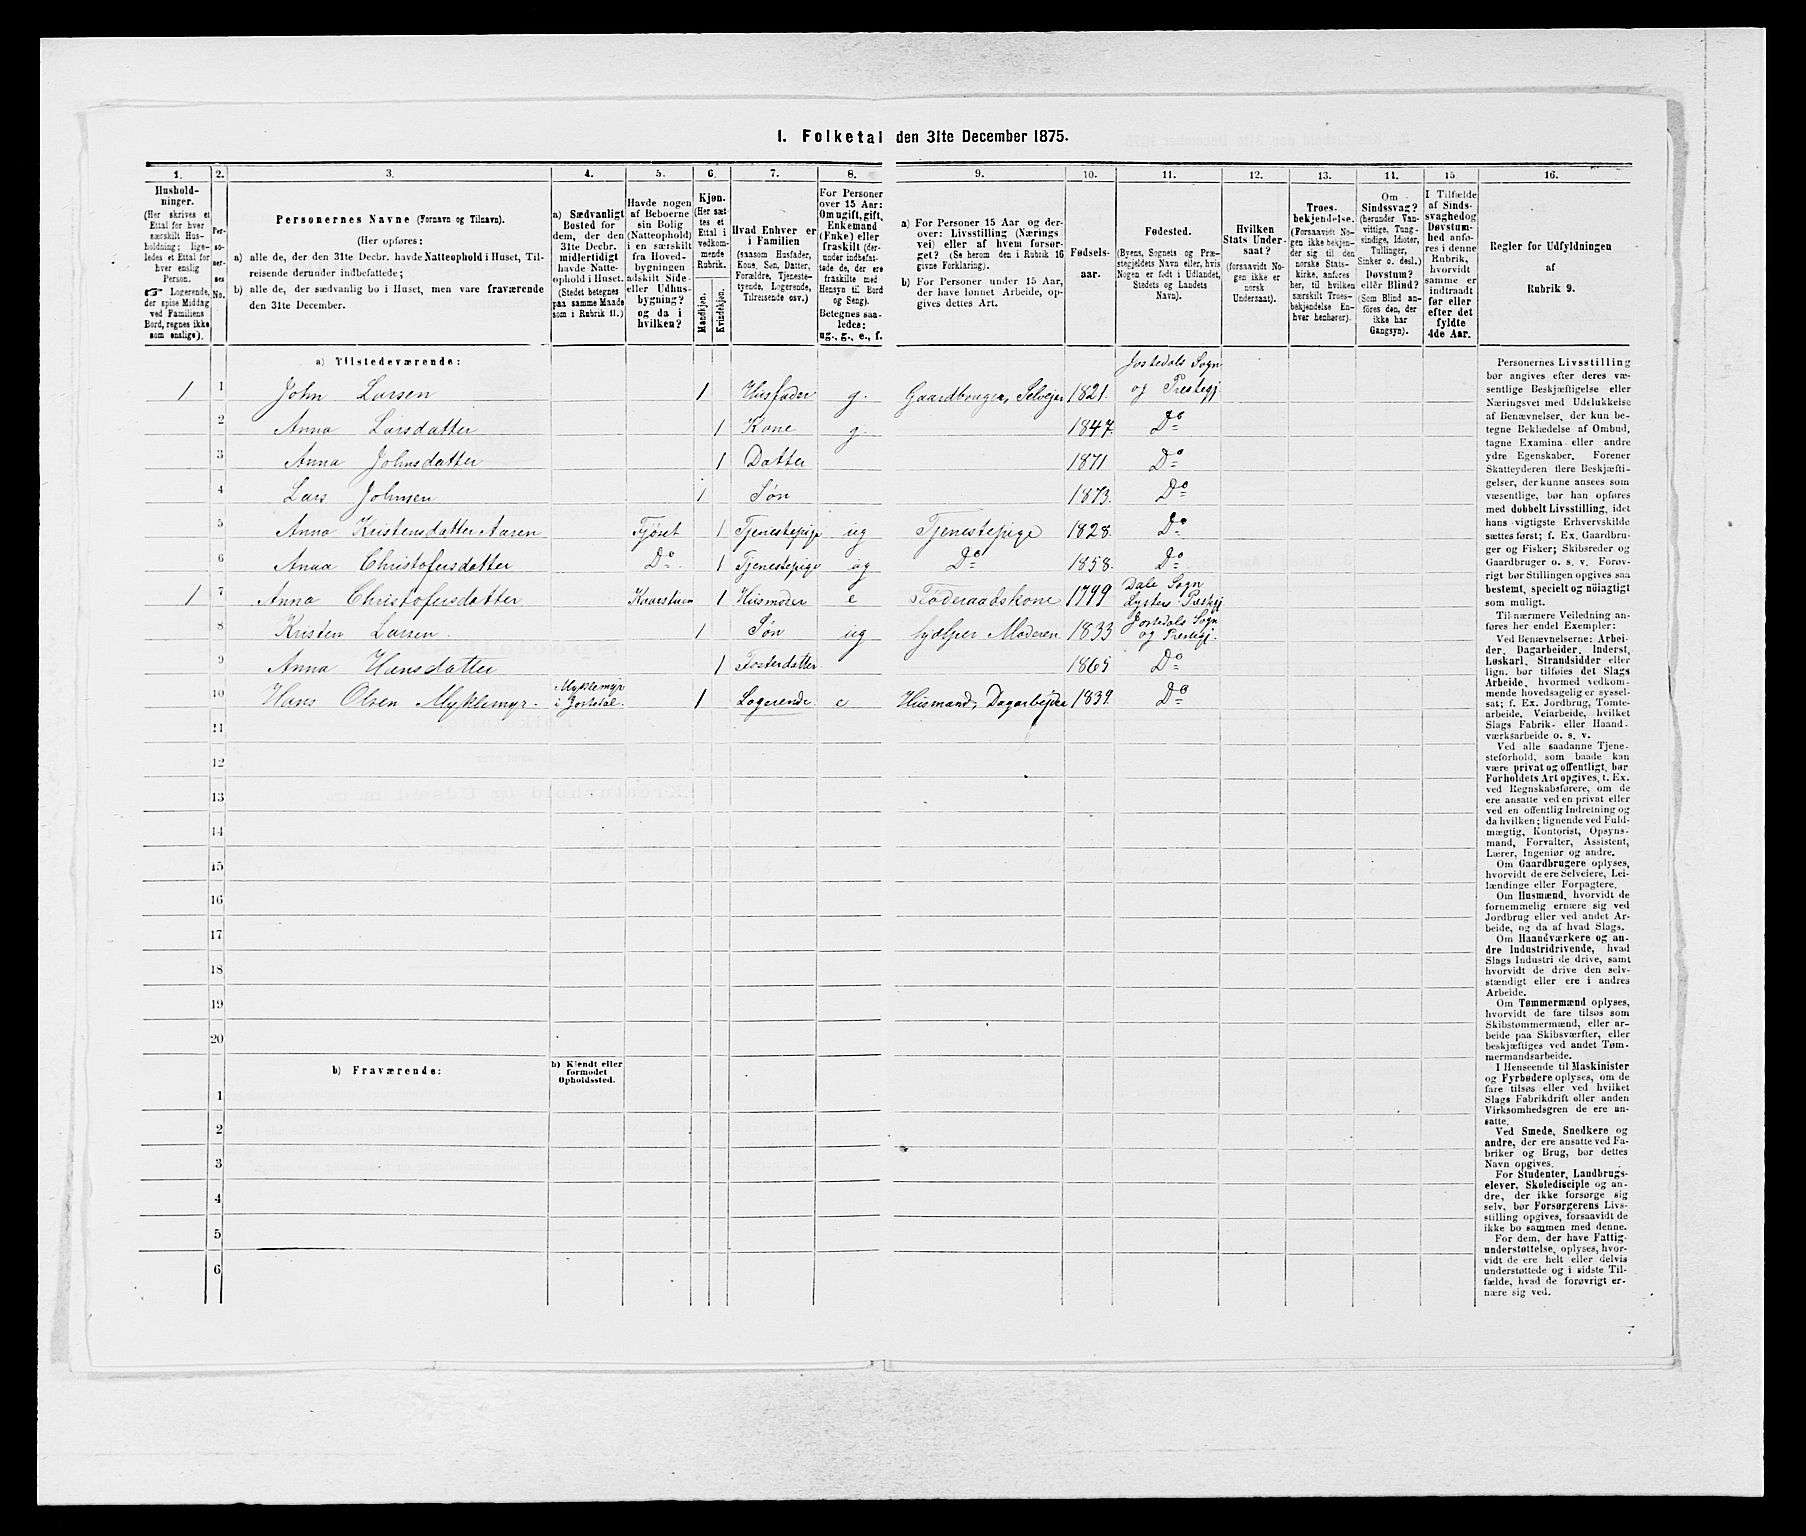 I. Folketal den 31te December 1875.
1. 2. 3. 4. 5. 6. 7. 8. 9. 10. 11. 12. 13. 14. 15 16.
Hushold-
ninger.
(Her skrives et
Ettal for hver
særskilt Hus-
holdning; lige-
ledes et Ettal for
hver enslig
Person.
☞ Logerende,
der spise Middag
ved Familiens
Bord, regnes ikke
som enslige).
Per-
so-
ner-
nes
No.
Personernes Navne (Fornavn og Tilnavn).
(Her opføres:
a) alle de, der den 31te Decbr. havde Natteophold i Huset, Til-
reisende derunder indbefattede;
b) alle de, der sædvanlig bo i Huset, men vare fraværende
den 31te December.
a) Sædvanligt
Bosted for
dem, der den
31te Decbr.
midlertidigt
havde Natte-
ophold i Huset.
(Stedet betegnes
paa samme Maade
som i Rubrik 11.)
Havde nogen
af Beboerne
sin Bolig
(Natteophold)
i en særskilt
fra Hoved-
bygningen
adskilt Side-
eller Udhus-
bygning?
og da i
hvilken?
Kjøn.
(Her sæt-
tes et
Ettal i
vedkom-
mende
Rubrik.
Mandkjøn.
Kvindekjøn.
Hvad Enhver er
i Familien
(saasom Husfader,
Kone, Søn, Datter,
Forældre, Tjeneste-
tyende, Logerende,
Tilreisende osv.)
For Personer
over 15 Aar:
Om ugift, gift,
Enkemand
(Enke) eller
fraskilt (der-
under indbefat-
tede de, der ere
fraskilte med
Hensyn til Bord
og Seng).
Betegnes saa-
ledes:
ug., g., e., f.
a) For Personer 15 Aar og der-
over: Livsstilling (Nærings-
vei) eller af hvem forsør-
get? (Se herom den i Rubrik 16
givne Forklaring).
b) For Personer under 15 Aar,
der have lønnet Arbeide, op-
gives dettes Art.
Fødsels-
aar.
Fødested.
(Byens, Sognets og Præ-
stegjeldets Navn eller, hvis
Nogen er født i Udlandet,
Stedets og Landets
Navn).
Hvilken
Stats Under-
saat?
(forsaavidt No-
gen ikke er
norsk
Undersaat).
Troes-
bekjendelse.
(Forsaavidt No-
gen ikke bekjen-
der sig til den
norske Stats-
kirke, anføres
her, til hvilken
særskilt Troes-
bekjendelse En-
hver henhører).
Om
Sindssvag?
(herunder Van-
vittige, Tung-
sindige, Idioter,
Tullinger,
Sinker o. desl.)
Døvstum?
eller Blind?
(Som Blind an-
føres den, der
ikke har
Gangsyn).
I Tilfælde
af Sinds-
svaghed og
Døvstum-
hed anfø-
res i denne
Rubrik,
hvorvidt
samme er
indtraadt
før eller
efter det
fyldte
4de Aar.
Regler for Udfyldningen
af
Rubrik 9.
a) Tilstedeværende:
Jostedals Sogn
1 1 John Larsen 1 Husfader g. Gaardbruger, Selveier 1821. og Prestegj
2 Anna Larsdatter 1 Kone g. 1847. Do
3 Anna Johnsdatter 1 Datter 1871 Do
4 Lars Johnsen 1 Søn 1873. Do
5 Anna Kristensdatter Aasen Fjøset 1 Tjenestepige ug Tjenestepige 1828. Do
6 Anna Christofersdatter Do 1 Tjenestepige ug Do 1858. Do
Dale Sogn
1 7 Anna Christofersdatter Kaarstuen 1 Husmoder e Føderaadskone 1799 Lysters Prestgj
Jostedals Sogn
8 Kristen Larsen 1 Søn ug hjælper Moderen 1833 og Prestegj.
9 Anna Hansdatter 1 Fosterdatter 1865 Do
Myklemyr
10 Hans Olsen Myklemyr. i Jostedal. 1 Logerende e Husmand, Dagarbejder 1839. Do
11
12
13
14
15
16
17
18
19
20
b) Fraværende:
b) Kjendt eller
formodet
Opholdssted.
1
2
3
4
5
6
Personernes Livsstilling
bør angives efter deres væ-
sentlige Beskjæftigelse eller
Næringsvei med Udelukkelse
af Benævnelser, der kun be-
tegne Beklædelse af Ombud,
tagne Examina eller andre
ydre Egenskaber. Forener
Skatteyderen flere Beskjæfti-
gelser, der kunne ansees som
væsentlige, bør han opføres
med dobbelt Livsstilling, idet
hans vigtigste Erhvervskilde
sættes først; f. Ex. Gaardbru-
ger og Fisker; Skibsreder og
Gaardbruger o. s. v. Forøv-
rigt bør Stillingen opgives saa
bestemt, specielt og nøiagtigt
som muligt.
Til nærmere Veiledning an-
føres her endel Exempler:
Ved Benævnelserne: Arbei-
der, Dagarbeider, Inderst,
Løskarl, Strandsidder eller
lign. bør tilføies det Slags
Arbeide, hvormed vedkom-
mende hovedsagelig er syssel-
sat; f. Ex. Jordbrug, Tomte-
arbeide, Veiarbeide, hvilket
Slags Fabrik- eller Haand-
værksarbeide o. s. v.
Ved alle saadanne Tjene-
steforhold, som baade kan
være privat og offentligt, bør
Forholdets Art opgives, t. Ex.
ved Regnskabsførere, om de
ere ansatte ved en privat eller
ved en offentlig Indretning og
da hvilken; lignende ved Fuld-
mægtig, Kontorist, Opsyns-
mand, Forvalter, Assistent,
Lærer, Ingeniør og andre.
Om Gaardbrugere oplyses,
hvorvidt de ere Selveiere, Lei-
lændinge eller Forpagtere.
Om Husmænd, hvorvidt de
fornemmelig ernære sig ved
Jordbrug eller ved andet Ar-
beide, og da af hvad Slags.
Om Haandværkere og an-
dre Industridrivende, hvad
Slags Industri de drive, samt
hvorvidt de drive den selv-
stændigt eller ere i andres
Arbeide.
Om Tømmermænd oplyses,
hvorvidt de fare tilsøs som
Skibstømmermænd, eller ar-
beide paa Skibsværfter, eller
beskjæftiges ved andet Tøm-
mermandsarbeide.
I Henseende til Maskinister
og Fyrbødere oplyses, om de
fare tilsøs eller ved hvilket
Slags Fabrikdrift eller anden
Virksomhedsgren de ere an-
satte.
Ved Smede, Snedkere og
andre, der ere ansatte ved Fa-
briker og Brug, bør dettes
Navn opgives.
For Studenter, Landbrugs-
elever, Skoledisciple og an-
dre, der ikke forsørge sig
selv, bør Forsørgerens Livs-
stilling opgives, forsaavidt de
ikke bo sammen med denne.
For dem, der have Fattig-
understøttelse, oplyses, hvor-
vidt de ere helt eller delvis
understøttede og i sidste Til-
fælde, hvad de forøvrigt er-
nære sig ved.